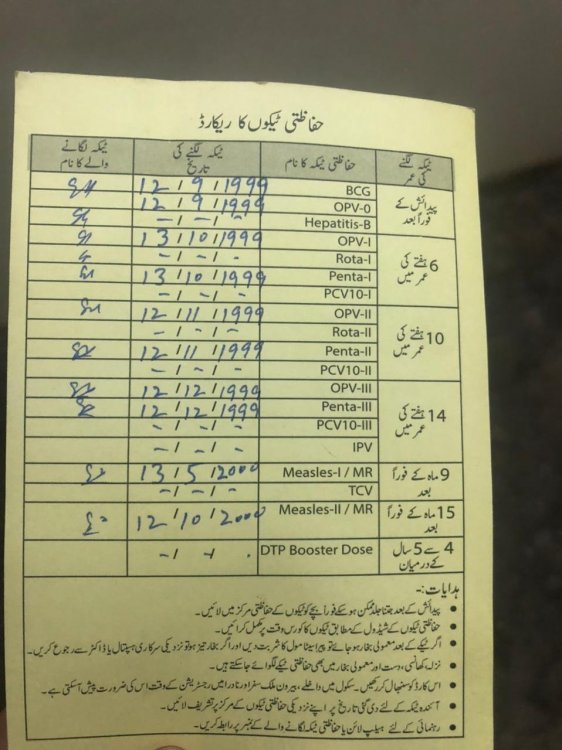 حفاظتی ٹیکوں کا ریکارڈ
ٹیکہ لگنے کی عمر | حفاظتی ٹیکہ کا نام | ٹیکہ لگنے کی تاریخ | ٹیکہ لگانے والے کا نام
پیدائش کے فوراً بعد | BCG | 12/9/1999
OPV-0 | 12/9/1999
Hepatitis-B | -/-/-
6 ہفتے کی عمر میں | OPV-I | 13/10/1999
Rota-I | -/-/-
Penta-I | 13/10/1999
PCV10-I | -/-/-
10 ہفتے کی عمر میں | OPV-II | 12/11/1999
Rota-II | -/-/-
Penta-II | 12/11/1999
PCV10-II | -/-/-
14 ہفتے کی عمر میں | OPV-III | 12/12/1999
Penta-III | 12/12/1999
PCV10-III | -/-/-
IPV | -/-/-
9 ماہ کے فوراً بعد | Measles-I / MR | 13/5/2000
TCV | -/-/-
15 ماہ کے فوراً بعد | Measles-II / MR | 12/10/2000
4 سے 5 سال کے درمیان | DTP Booster Dose | -/-/.
ہدایات:-
• پیدائش کے بعد جتنا جلد ممکن ہو سکے فوراً بچے کو ٹیکوں کے حفاظتی مرکز میں لائیں۔
• حفاظتی ٹیکوں کے شیڈول کے مطابق ٹیکوں کا کورس وقت پر مکمل کرائیں۔
• اگر ٹیکے کے بعد معمولی بخار ہو جائے تو پیراسیٹامول کا شربت دیں اور اگر بخار تیز ہو تو نزدیکی سرکاری ہسپتال یا ڈاکٹر سے رجوع کریں۔
• نزلہ، کھانسی، دست اور معمولی بخار میں بھی حفاظتی ٹیکے لگوائے جا سکتے ہیں۔
• اس کارڈ کو سنبھال کر رکھیں۔ سکول میں داخلے، بیرون ملک سفر اور نادرا میں رجسٹریشن کے وقت اس کی ضرورت پیش آ سکتی ہے۔
• آئندہ ٹیکہ کے لئے دی گئی تاریخ پر اپنے نزدیکی حفاظتی ٹیکوں کے مرکز پر تشریف لائیں۔
• رہنمائی کے لئے ہیلپ لائن یا حفاظتی ٹیکے لگانے والے کے نمبر پر رابطہ کریں۔